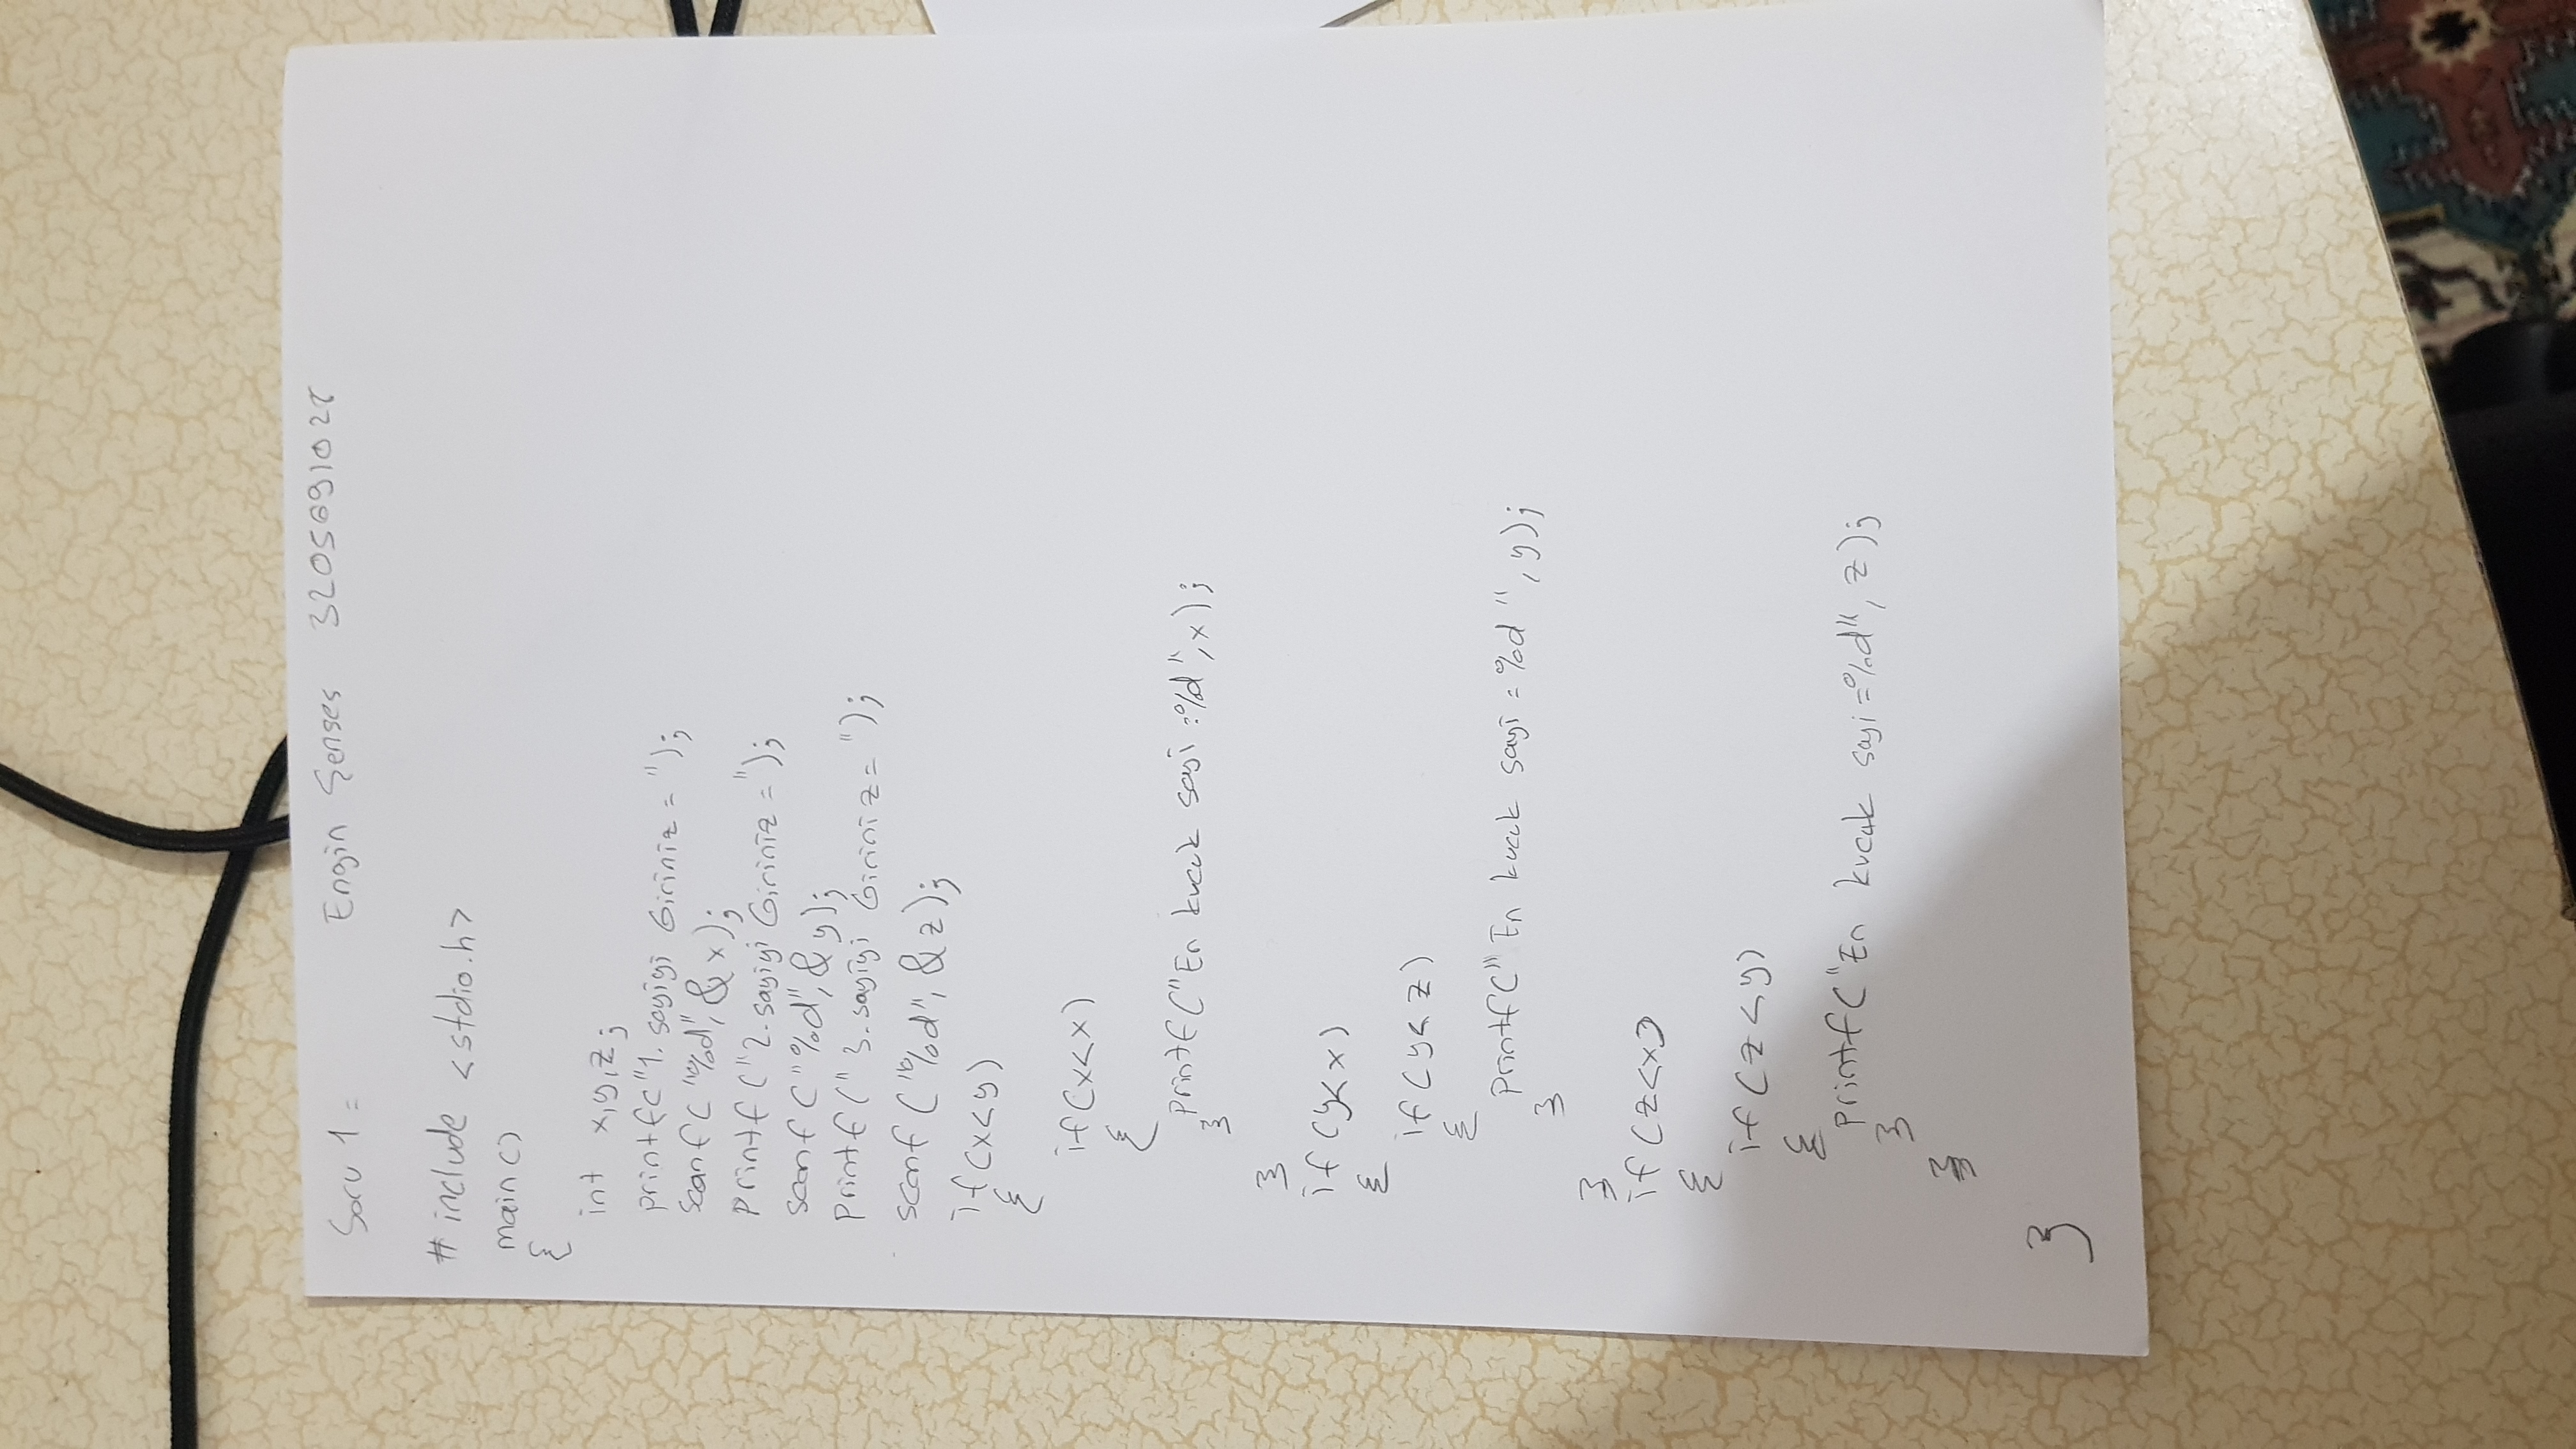 Soru 1 = Engin Şenses 32056691025
# include <stdio.h>
main()
{
int x,y,z;
printf("1. sayiyi Giriniz = ");
scanf("%d",&x);
printf("2. sayiyi Giriniz = ");
scanf("%d",&y);
printf("3. sayiyi Giriniz = ");
scanf("%d",&z);
if(x<y)
{
if(x<x)
{
printf("En kucuk sayi :%d",x);
}
}
if(y<x)
{
if(y<z)
{
printf("En kucuk sayi =%d",y);
}
}
if(z<x)
{
if(z<y)
{
printf("En kucuk sayi =%d",z);
}
}
}